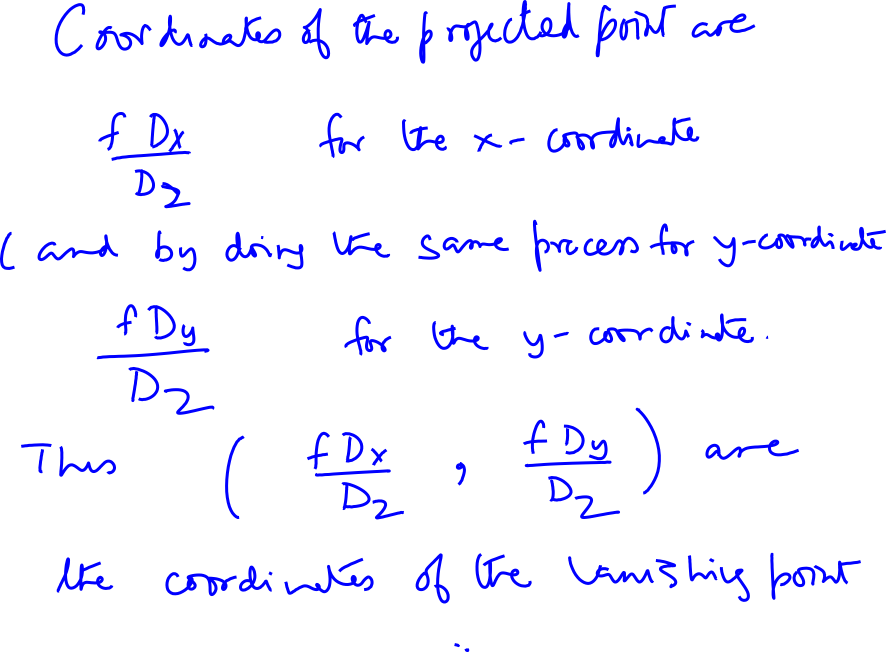 Coordinates of the projected point are
f Dx / D2 for the x-coordinate
( and by doing the same process for y-coordinate
f Dy / D2 for the y-coordinate.
Thus ( f Dx / D2 , f Dy / D2 ) are
the coordinates of the vanishing point